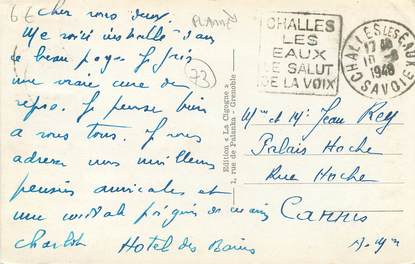 6€
PLANTÉ
Cher vous deux.
Me voici installé dans
ce beau pays je fais
une vraie cure de
repos. Je pense bien
à vous tous. Je vous
adresse mes meilleures
pensées amicales et
une cordiale poignée de main
Hotel des Bains
73
Edition « La Cigogne »
1, rue de Palanka - Grenoble
CHALLES
LES
EAUX
LE SALUT
DE LA VOIX
CHALLES LES EAUX
1948
SAVOIE
Mme et Mr Jean Rey
Palais Hoche
Rue Hoche
Cannes
A. Mmes